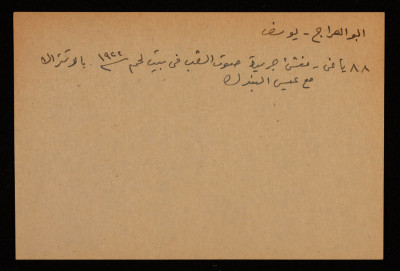 ابو العراج - يوسف
٨٨ يافى - منشئ جريدة صوت الشعب فى بيت لحم ١٩٢٢ بالاشتراك
مع عيسى البندك